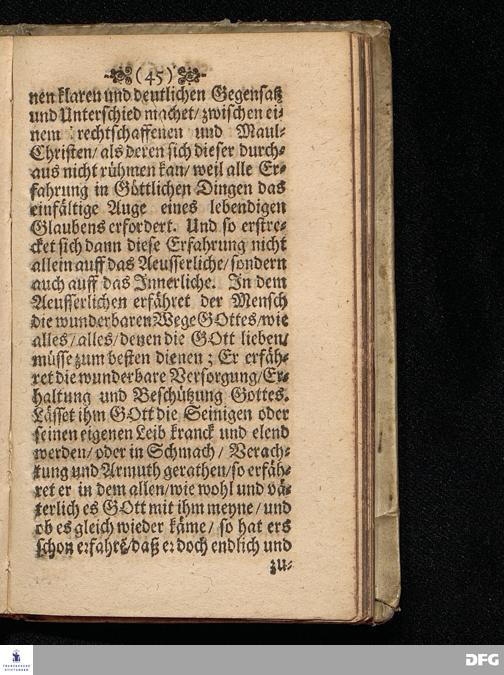 (45)
nen klaren und deutlichen Gegensatz
und Unterschied machet/ zwischen ei⸗
nem rechtschaffenen und Maul⸗
Christen/ als deren sich dieser durch⸗
aus nicht rühmen kan/ weil alle Er⸗
fahrung in Göttlichen Dingen das
einfältige Auge eines lebendigen
Glaubens erfordert. Und so erstre⸗
cket sich dann diese Erfahrung nicht
allein auff das Aeusserliche/ sondern
auch auff das Innerliche. In dem
Aeusserlichen erfähret der Mensch
die wunderbaren Wege GOttes/ wie
alles/ alles/ denen die GOtt lieben/
müsse zum besten dienen; Er erfäh⸗
ret die wunderbare Versorgung/ Er⸗
haltung und Beschützung Gottes.
Lässet ihm GOtt die Seinigen oder
seinen eigenen Leib kranck und elend
werden/ oder in Schmach/ Verach⸗
tung und Armuth gerathen/ so erfäh⸗
ret er in dem allen/ wie wohl und vä⸗
terlich es GOtt mit ihm meyne/ und
ob es gleich wieder käme/ so hat ers
schon erfahrẽ/ daß er doch endlich und
zu⸗
FRANCKESCHE
STIFTUNGEN
DFG